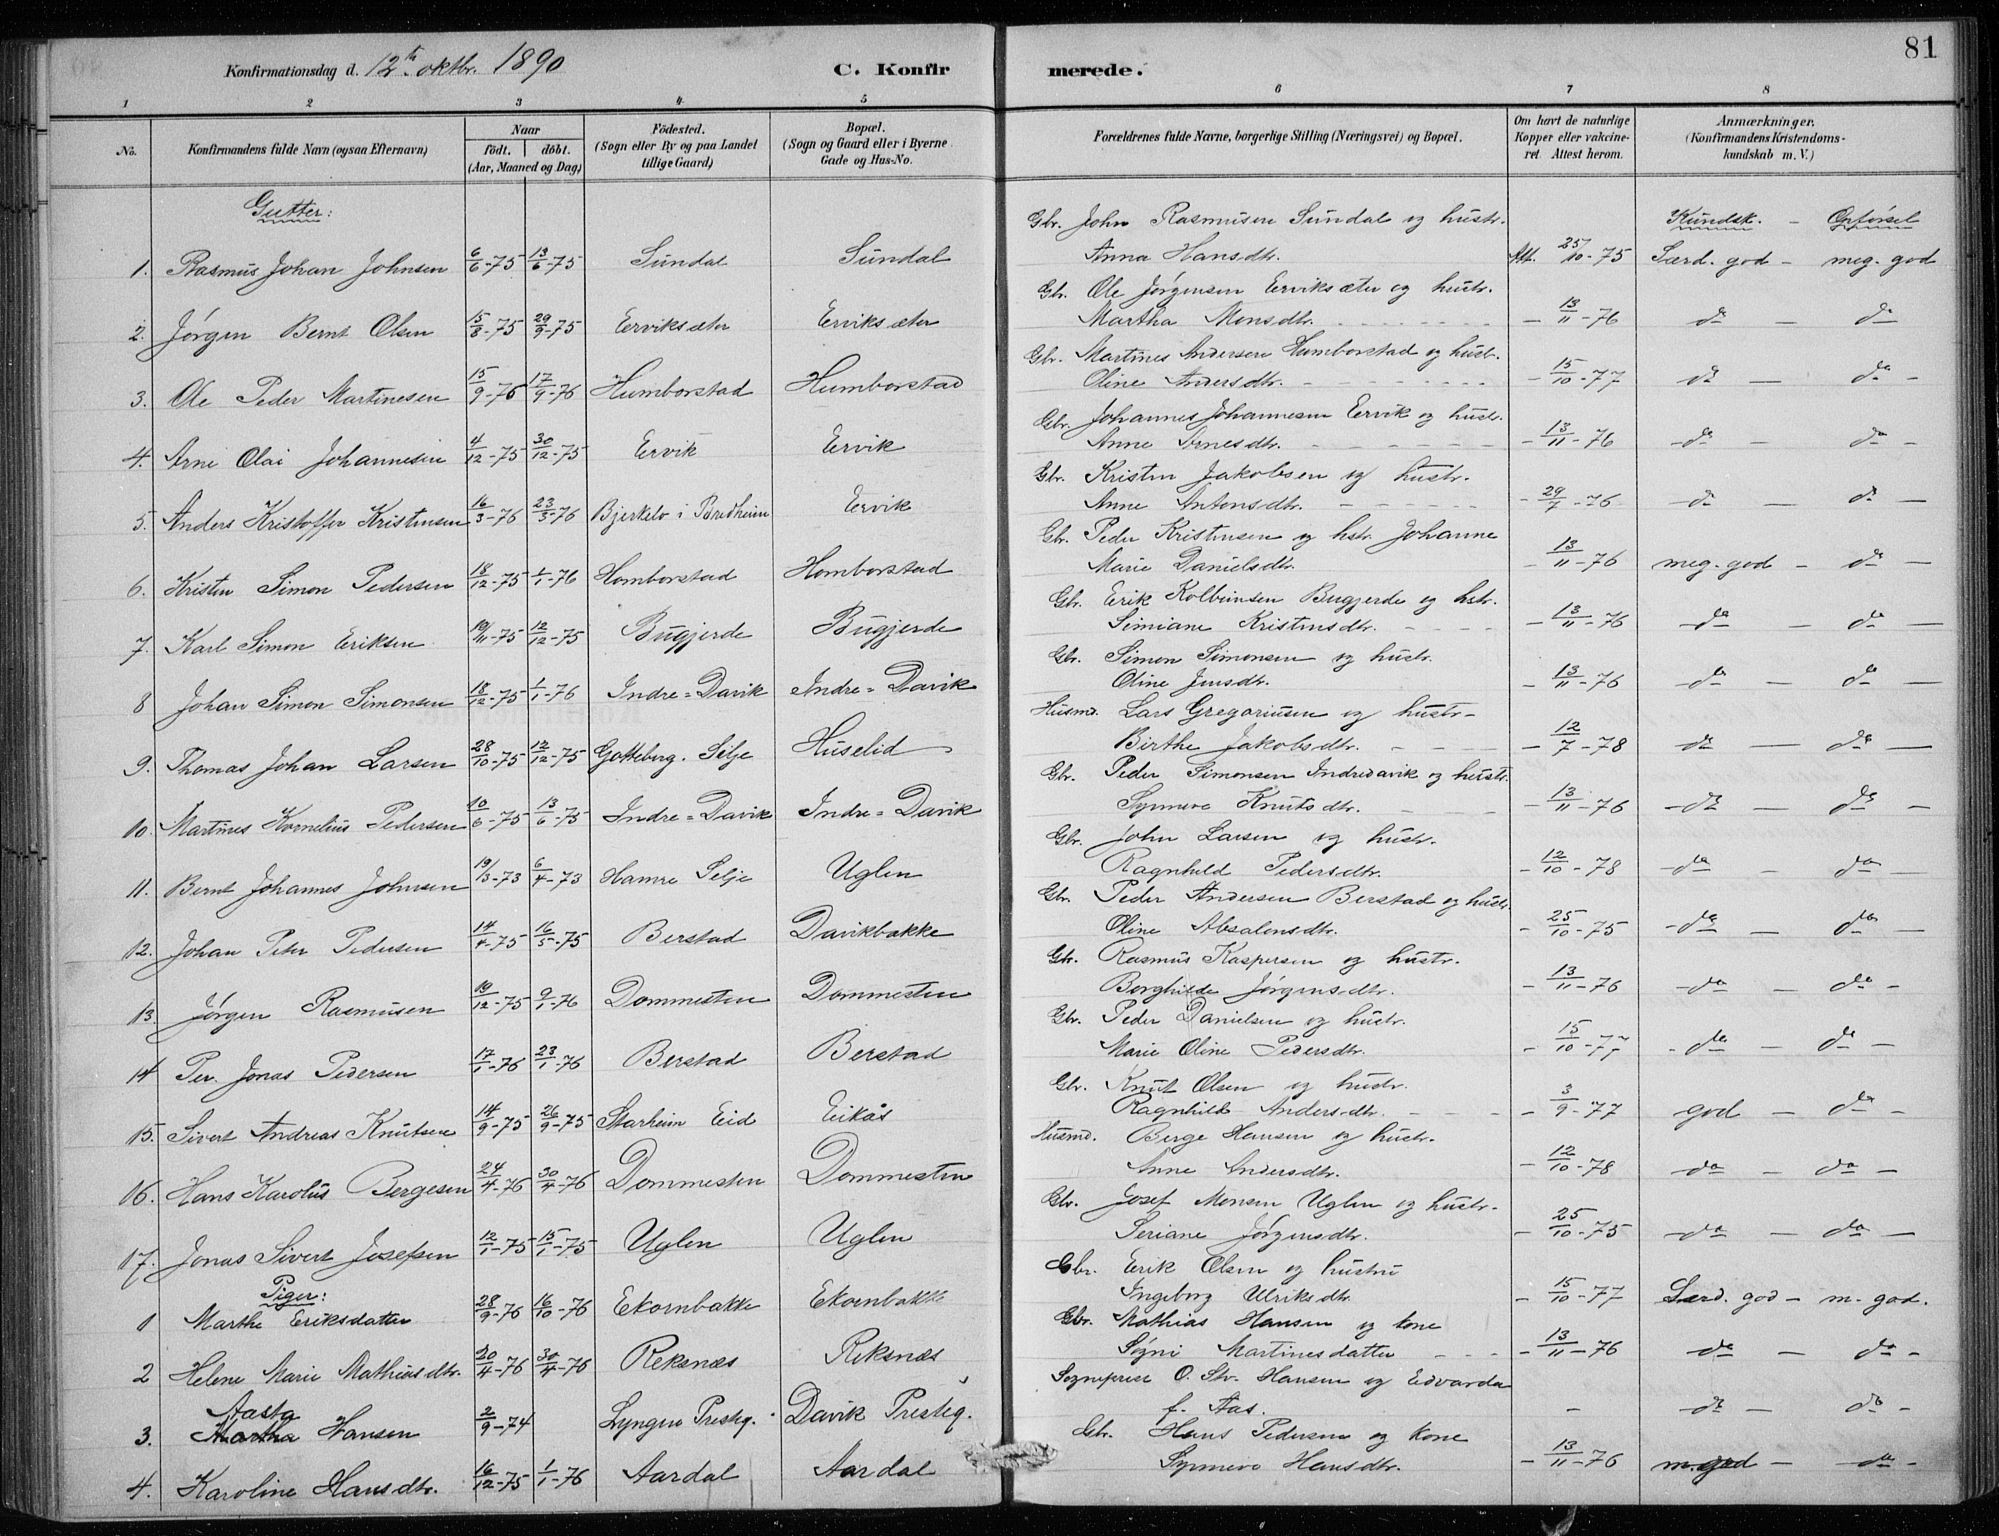 81
Konfirmationsdag d. 12te oktbr. 1890 C. Konfirmerede.
1 2 3 4 5 6 7 8
No. Konfirmandens fulde Navn (ogsaa Efternavn) Naar födt. döbt. (Aar, Maaned og Dag) Födested. (Sogn eller By og paa Landet tillige Gaard) Bopæl. (Sogn og Gaard eller i Byerne Gade og Hus-No. Forældrenes fulde Navne, borgerlige Stilling (Næringsvei) og Bopæl. Om havt de naturlige Kopper eller vakcineret. Attest herom. Anmærkninger. (Konfirmandens Kristendomskundskab m. V.)
Gutter: Kundsk. - Opførsel
1. Rasmus Johan Johnsen 6/6-75 13/6-75 Sundal Sundal Gbr. John Rasmusen Sundal og hustr. Anna Hansdtr. Att. 25/10-75 Særd. god - meg. god
2. Jørgen Bernt Olsen 15/8-75 29/9-75 Erviksæter Erviksæter Gbr. Ole Jørgensen Erviksæter og hustr. Martha Monsdtr. - 13/11-76 do - do
3. Ole Peder Martinesen 15/9-76 17/9-76 Humborstad Humborstad Gbr. Martines Andersen Humborstad og hustr. Oline Andersdtr. - 15/10-77 do - do -
4. Arne Olai Johannesen 4/12-75 30/12-75 Ervik Ervik Gbr. Johannes Johannesen Ervik og hustr. Anne Arnesdtr. - 13/11-76 - do - do -
5. Anders Kristoffer Kristensen 16/3-76 23/3-76 Bjerkelo i Bredheim Ervik Gbr. Kristen Jakobsen og hustr. Anne Antonsdtr. - 29/7-76 - do - do -
6. Kristen Simon Pedersen 18/12-75 1/1-76 Homborstad Homborstad Gbr. Peder Kristensen og hstr. Johanne Marie Danielsdtr. - 13/11-76 meg. god - do -
7. Karl Simon Eriksen 19/11-75 12/12-75 Bugjerde Bugjerde Gbr. Erik Kolbeinsen Bugjerde og hstr. Simiane Kristensdtr. - 13/11-76 - do - do -
8 Johan Simon Simonsen 18/12-75 1/1-76 Indre=Davik Indre=Davik Gbr. Simon Simonsen og hustr. Oline Jensdtr. - 13/11-76 - do - do -
9. Thomas Johan Larsen 28/10-75 12/12-75 Gotteberg. Selje Huselid Husmd. Lars Gregoriusen og hustr- Birthe Jakobsdtr. - 12/7-78 do - do -
10. Martines Kornelius Pedersen 10/6-75 13/6-75 Indre=Davik Indre=Davik Gbr. Peder Simonsen Indredavik og hustr. Synneve Knutsdtr. - 13/11-76 - do - do -
11. Bernt Johannes Johnsen 19/3-73 6/4-73 Hamre Selje Uglen Gbr. John Larsen og hustr. Ragnhild Pedersdtr. - 12/10-78 - do - do -
12. Johan Peter Pedersen 14/4-75 16/5-75 Berstad Davikbakke Gbr. Peder Andersen Berstad og hustr. Oline Absalonsdtr. - 25/10-75 - do - do -
13. Jørgen Rasmusen 19/12-75 9/1-76 Dommesten Dommesten Gbr. Rasmus Kaspersen og hustr. Borghilde Jørgensdtr. - 13/11-76 - do - do -
14 Per. Jonas Pedersen 17/1-76 23/1-76 Berstad Berstad Gbr. Peder Danielsen og hustr. Marie Oline Pedersdtr. - 15/10-77 - do - do -
15. Sivert Andreas Knutsen 14/9-75 26/9-75 Starheim Eid Eikås Gbr. Knut Olsen og hustr. Ragnhild Andersdtr. - 3/9-77 god - do -
16. Hans Karolus Bergesen 24/4-76 30/4-76 Dommesten Dommesten Husmd. Berge Hansen og hustr. Anne Andersdtr. - 12/10-78 - do - do -
17. Jonas Sivert Josefsen 12/1-75 15/1-75 Uglen Uglen Gbr. Josef Monsen Uglen og hustr- Seriane Jørgensdtr. - 25/10-75 - do - do -
Piger:
1 Marthe Eriksdatter 28/9-76 16/10-76 Ekornbakke Ekornbakke Gbr. Erik Olsen og hustru Ingeborg Ulriksdtr - 15/10-77 Særd. god - m. god.
2 Helene Marie Mathiasdtr. 20/4-76 30/4-76 Reksnæs Reksnæs Gbr. Mathias Hansen og kone Søgni Martinesdatter - 13/11-76 do - do -
3. Aasta Hansen 2/9-74 Lyngen Presteg. Davik Presteg. Sogneprest O. Hansen og Edvarda f. Aas. - do - do -
4. Karoline Hansdtr. 16/12-75 1/1-76 Aardal Aardal Gbr. Hans Pedersen og kone Synneve Hansdtr. - 13/11-76 m. god - do -